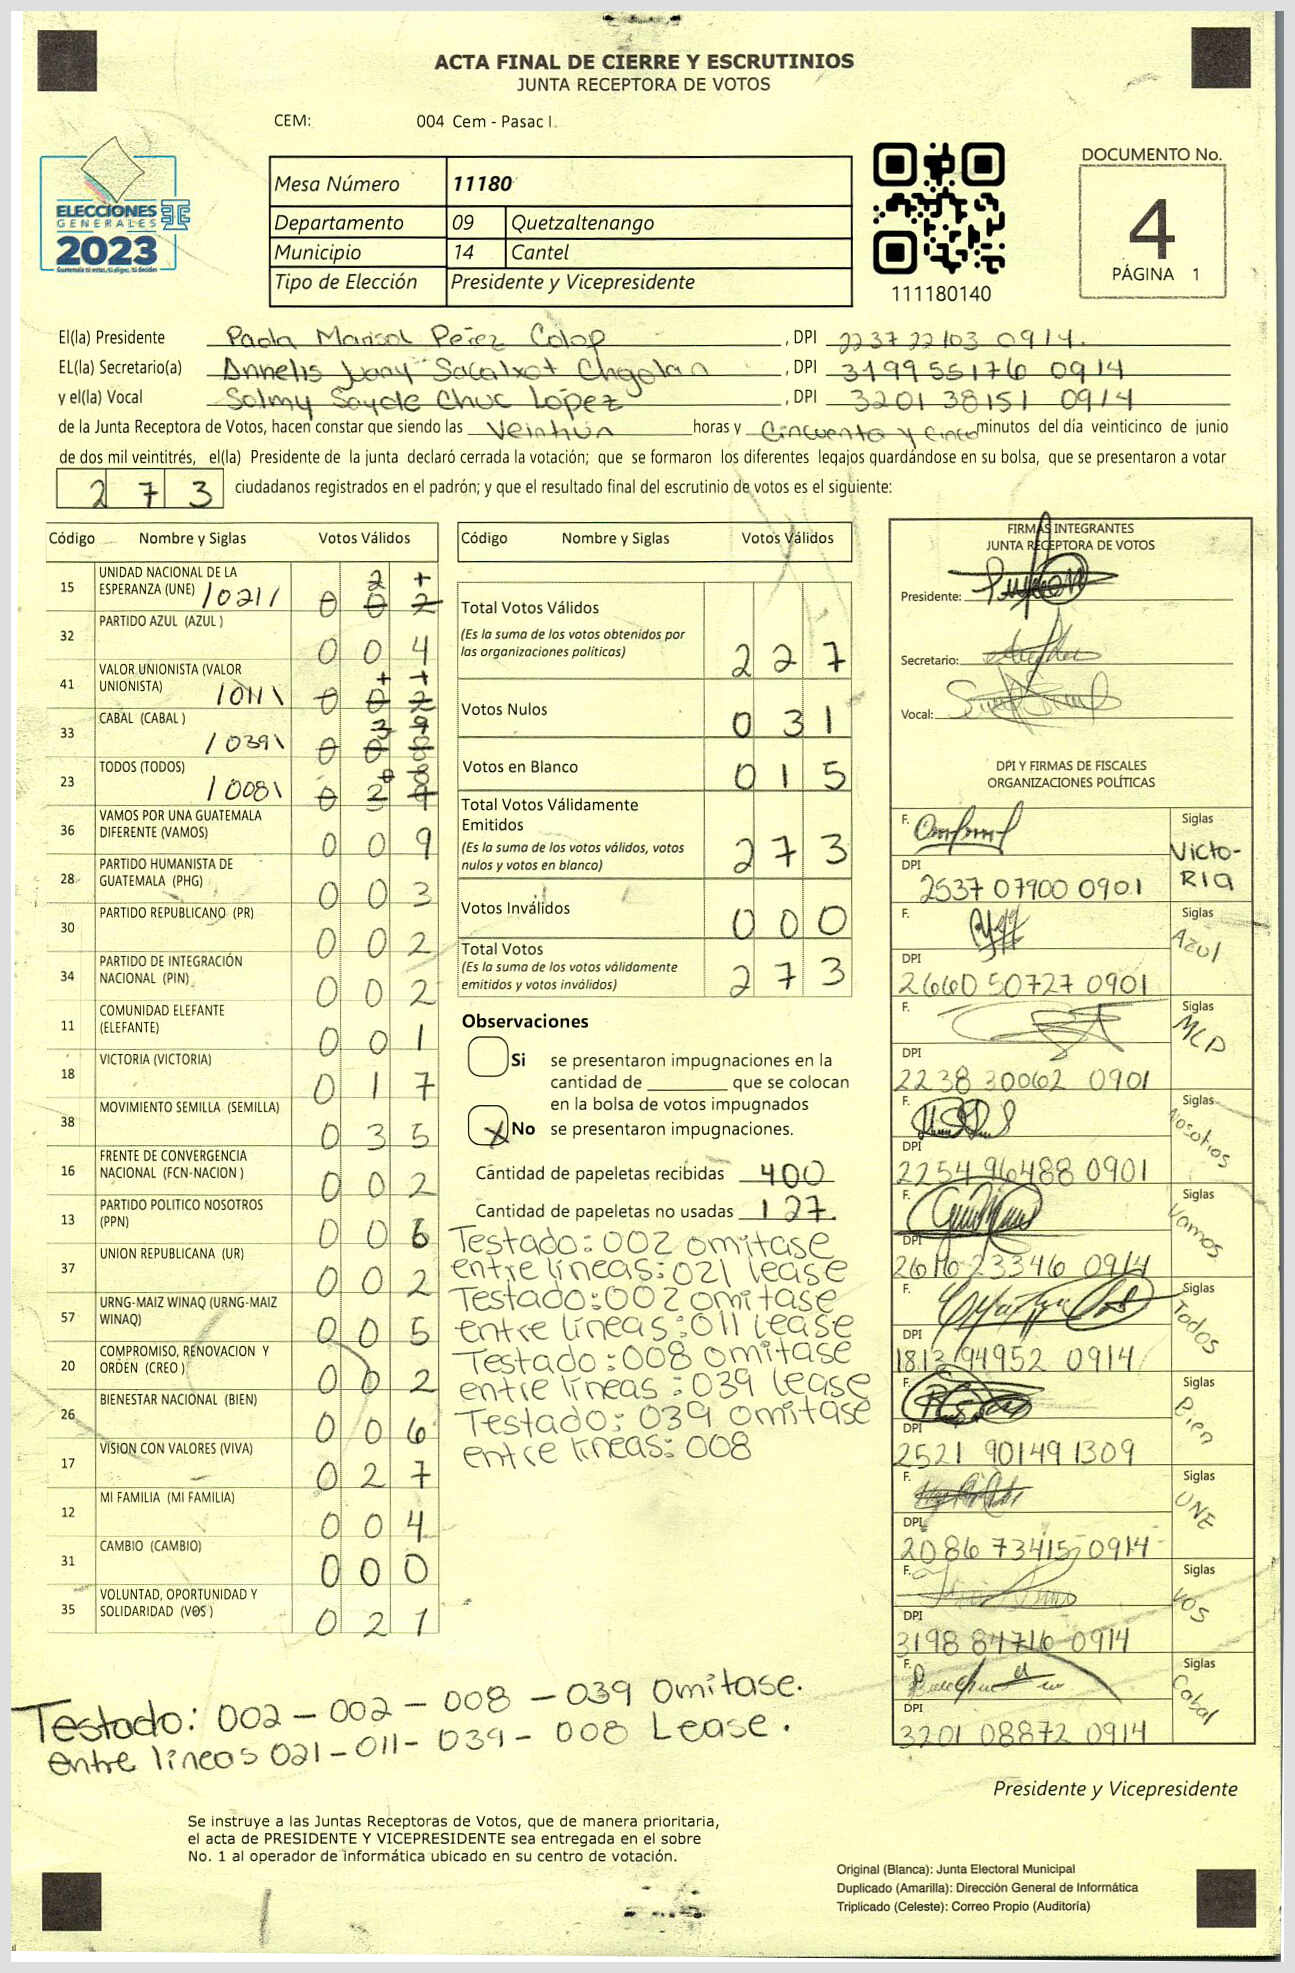 ACTA FINAL DE CIERRE Y ESCRUTINIOS
JUNTA RECEPTORA DE VOTOS
CEM: 004 Cem - Pasac I.
ELECCIONES
GENERALES
2023
Mesa Número 11180
Departamento 09 Quetzaltenango
Municipio 14 Cantel
Tipo de Elección Presidente y Vicepresidente
111180140
DOCUMENTO No.
4
PÁGINA 1
El(la) Presidente Paola Marisol Pérez Colop, DPI 2237 22103 0914.
EL(la) Secretario(a) Annelis Juany Sacalxot Chgolan, DPI 3199 55176 0914
y el(la) Vocal Solmy Sayde Chuc López, DPI 3201 38151 0914
de la Junta Receptora de Votos, hacen constar que siendo las Veintiún horas y Cincuenta y Cinco minutos del día veinticinco de junio
de dos mil veintitrés, el(la) Presidente de la junta declaró cerrada la votación; que se formaron los diferentes legajos guardándose en su bolsa, que se presentaron a votar
273 ciudadanos registrados en el padrón; y que el resultado final del escrutinio de votos es el siguiente:
Código Nombre y Siglas Votos Válidos
15 UNIDAD NACIONAL DE LA ESPERANZA (UNE) /021/ 0 0 2
32 PARTIDO AZUL (AZUL ) 0 0 4
41 VALOR UNIONISTA (VALOR UNIONISTA) /011\ 0 0 2
33 CABAL (CABAL ) /039\ 0 0 8
23 TODOS (TODOS) /008\
36 VAMOS POR UNA GUATEMALA DIFERENTE (VAMOS) 0 0 9
28 PARTIDO HUMANISTA DE GUATEMALA (PHG) 0 0 3
30 PARTIDO REPUBLICANO (PR) 0 0 2
34 PARTIDO DE INTEGRACIÓN NACIONAL (PIN) 0 0 2
11 COMUNIDAD ELEFANTE (ELEFANTE) 0 0 1
18 VICTORIA (VICTORIA) 0 1 7
38 MOVIMIENTO SEMILLA (SEMILLA) 0 3 5
16 FRENTE DE CONVERGENCIA NACIONAL (FCN-NACION ) 0 0 2
13 PARTIDO POLITICO NOSOTROS (PPN) 0 0 6
37 UNION REPUBLICANA (UR) 0 0 2
57 URNG-MAIZ WINAQ (URNG-MAIZ WINAQ) 0 0 5
20 COMPROMISO, RENOVACION Y ORDEN (CREO ) 0 0 2
26 BIENESTAR NACIONAL (BIEN) 0 0 6
17 VISION CON VALORES (VIVA) 0 2 7
12 MI FAMILIA (MI FAMILIA) 0 0 4
31 CAMBIO (CAMBIO) 0 0 0
35 VOLUNTAD, OPORTUNIDAD Y SOLIDARIDAD (VOS ) 0 2 1
Código Nombre y Siglas Votos Válidos
Total Votos Válidos 2 2 7
(Es la suma de los votos obtenidos por
las organizaciones políticas)
Votos Nulos 0 3 1
Votos en Blanco 0 1 5
Total Votos Válidamente
Emitidos 2 7 3
(Es la suma de los votos válidos, votos
nulos y votos en blanco)
Votos Inválidos 0 0 0
Total Votos 2 7 3
(Es la suma de los votos válidamente
emitidos y votos inválidos)
Observaciones
Si se presentaron impugnaciones en la
cantidad de ________ que se colocan
en la bolsa de votos impugnados
X No se presentaron impugnaciones.
Cantidad de papeletas recibidas 400
Cantidad de papeletas no usadas 127.
Testado: 002 omitase
entre lineas: 021 lease
Testado: 002 omitase
entre lineas: 011 lease
Testado: 008 omitase
entre lineas: 039 lease
Testado: 039 omitase
entre lineas: 008
FIRMAS INTEGRANTES
JUNTA RECEPTORA DE VOTOS
Presidente:
Secretario:
Vocal:
DPI Y FIRMAS DE FISCALES
ORGANIZACIONES POLÍTICAS
F. Siglas
VICTORIA
DPI 2537 07900 0901
F. Siglas
Azul
DPI 2660 50727 0901
F. Siglas
MLP
DPI 2238 30062 0901
F. Siglas
Nosotros
DPI 2254 96488 0901
F. Siglas
Vamos
DPI 2610 23346 0914
F. Siglas
Todos
DPI 1813 94952 0914
F. Siglas
Bien
DPI 2521 90149 1309
F. Siglas
UNE
DPI 2086 73415 0914
F. Siglas
VOS
DPI 3198 84716 0914
F. Siglas
Cabal
DPI 3201 08872 0914
Testado: 002 - 002 - 008 - 039 omitase.
entre lineas 021 - 011 - 039 - 008 Lease.
Presidente y Vicepresidente
Se instruye a las Juntas Receptoras de Votos, que de manera prioritaria,
el acta de PRESIDENTE Y VICEPRESIDENTE sea entregada en el sobre
No. 1 al operador de informática ubicado en su centro de votación.
Original (Blanca): Junta Electoral Municipal
Duplicado (Amarilla): Dirección General de Informática
Triplicado (Celeste): Correo Propio (Auditoría)